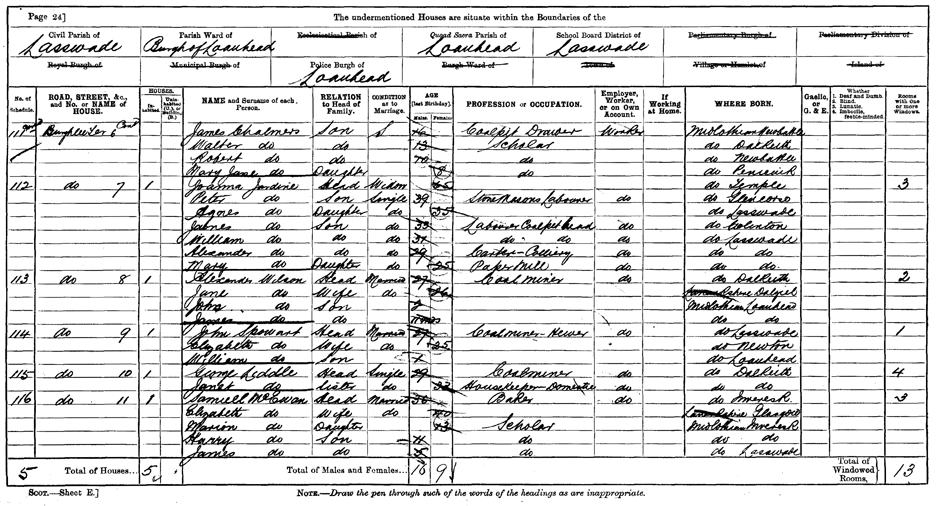 Page 24]
The undermentioned Houses are situate within the Boundaries of the
Civil Parish of Lasswade
Parish Ward of Burgh of Loanhead
Ecclesiastical Parish of
Quoad Sacra Parish of Loanhead
School Board District of Lasswade
Parliamentary Burgh of
Parliamentary Division of
Royal Burgh of
Municipal Burgh of
Police Burgh of Loanhead
Burgh Ward of
Town of
Village or Hamlet of
Island of
No. of Schedule.
ROAD, STREET, &c., and No. or NAME of HOUSE.
HOUSES.
Inhabited.
Uninhabited (U.), or Building (B.)
NAME and Surname of each Person.
RELATION to Head of Family.
CONDITION as to Marriage.
AGE (last Birthday).
Males. Females.
PROFESSION or OCCUPATION.
Employer, Worker, or on Own Account.
If Working at Home.
WHERE BORN.
Gaelic, or G. & E.
Whether 1. Deaf and Dumb 2. Blind. 3. Lunatic. 4. Imbecile, feeble-minded.
Rooms with one or more Windows.
6 James Chalmers Son S 16 Coalpit Drawer Worker Midlothian Newbattle
Walter do do 13 Scholar do Dalkeith
Robert do do 10 do do Newbattle
Mary Jane do Daughter 8 do do Penicuik
112 do 7 1 Joanna Jardine Head Widow 65 do Temple 3
Peter do Son Single 39 Stone Masons Labourer do do Glencorse
Agnes do Daughter do 35 do Lasswade
James do Son do 33 Labourer Coalpit head do do Colinton
William do do do 31 do do do do Lasswade
Alexander do do do 29 Carter - Colliery do do do
Mary do Daughter do 25 Paper Mill do do do
113 do 8 1 Alexander Wilson Head Married 27 Coal miner do do Dalkeith 2
Jane do Wife do 26 Dalziel
John do Son Midlothian Loanhead
James do do do do
114 do 9 1 John Spowart Head Married 27 Coalminer - Hewer do do Lasswade 1
Elizabeth do Wife do 25 do Newton
William do Son 1 do Loanhead
115 do 10 1 George Liddle Head Single 29 Coalminer do do Dalkeith 4
Janet do Sister do 32 Housekeeper - Domestic do do do
116 do 11 1 Samuell McEwan Head Married 36 Baker do do Inveresk 3
Elizabeth do Wife do 40 Glasgow
Marion do Daughter 13 Scholar Midlothian Inveresk
Harry do Son 11 do do do
James do do 5 do do Lasswade
5 Total of Houses... 5 Total of Males and Females... 16 9 Total of Windowed Rooms, 13
SCOT.—Sheet E.]
NOTE.—Draw the pen through such of the words of the headings as are inappropriate.